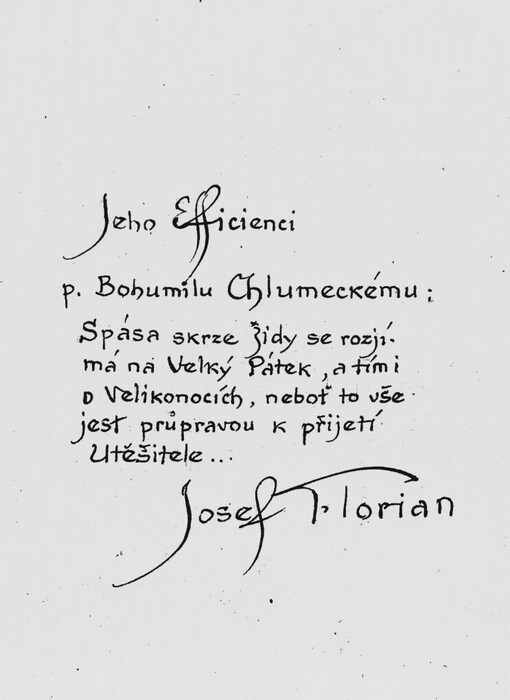 Jeho Efficienci
p. Bohumilu Chlumeckému:
Spása skrze Židy se rozjí-
má na Velký Pátek, a tím i
o Velikonocích, neboť to vše
jest průpravou k přijetí
Utěšitele...
Josef Florian